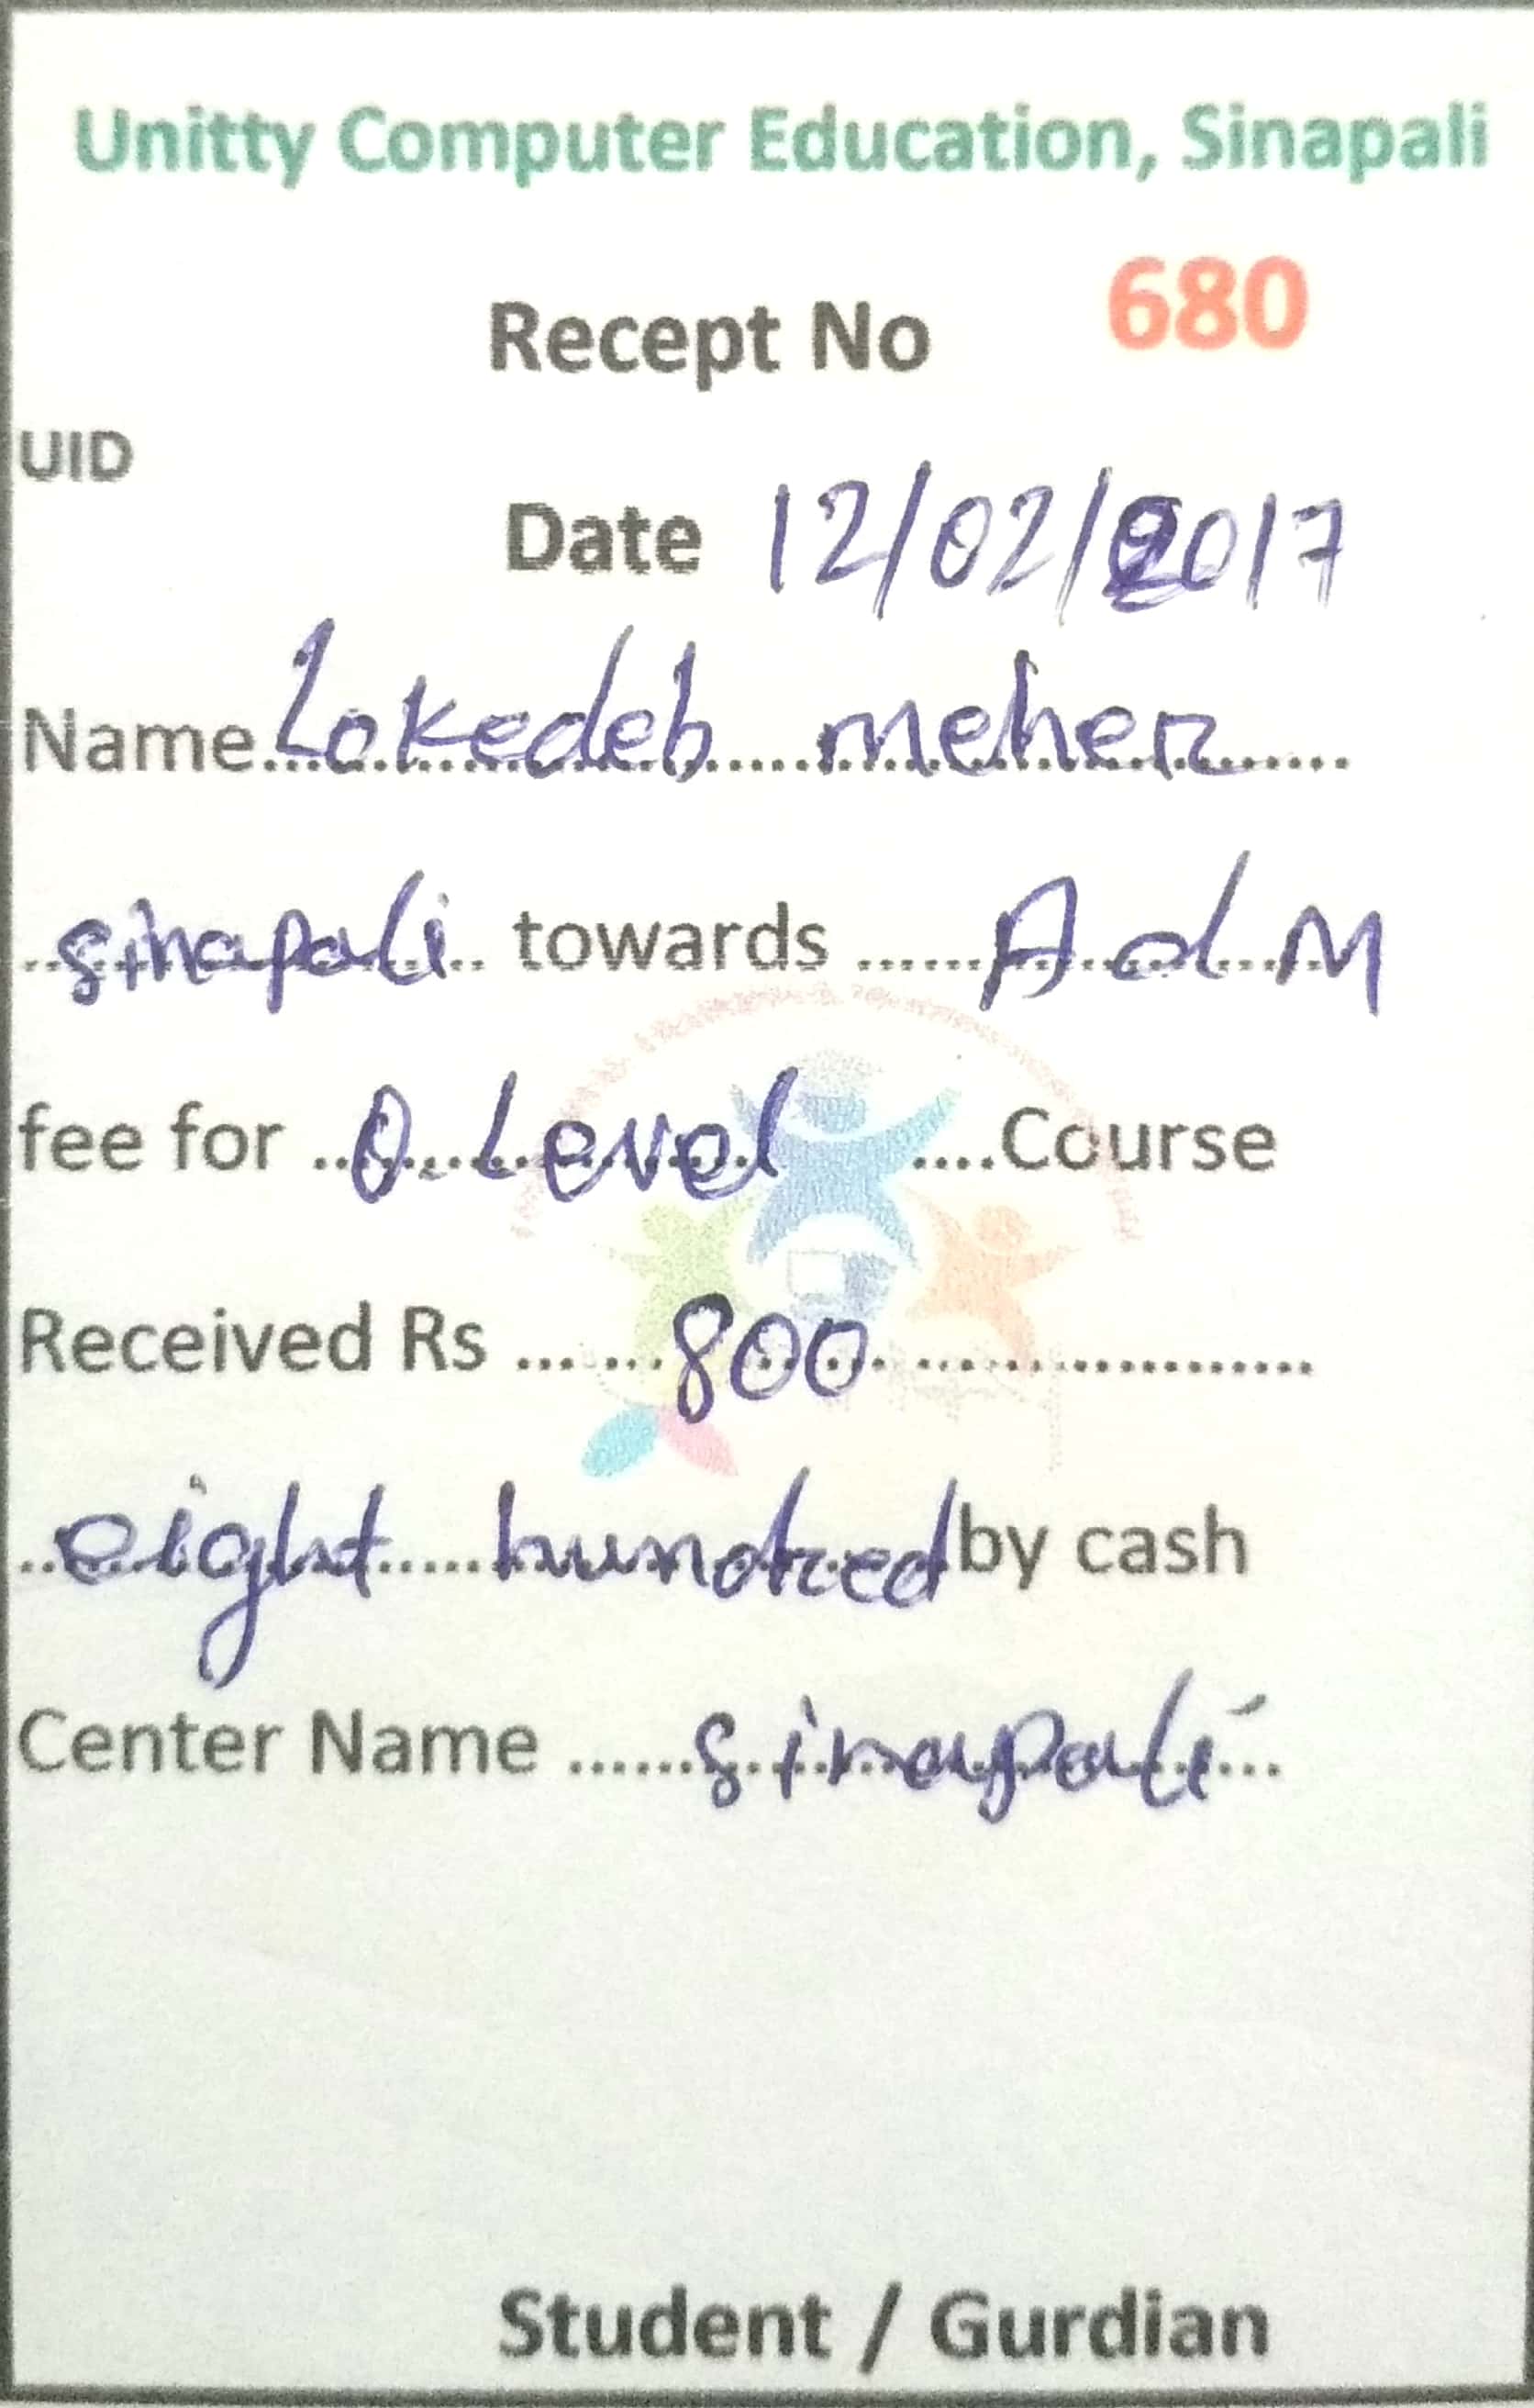 Unitty Computer Education, Sinapali
Recept No 680
UID
Date 12/02/2017
Name Lokedeb meher
sinapali towards Ad M
fee for O. Level Course
Received Rs 800
eight hundred by cash
Center Name sinapali
Student / Gurdian